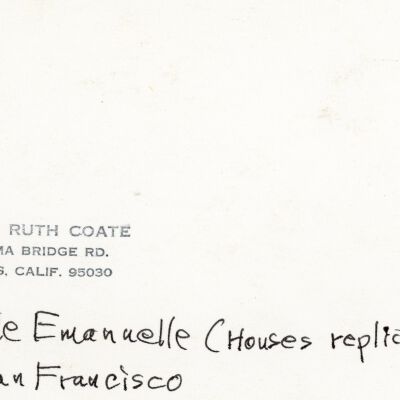 RUTH COATE
MA BRIDGE RD.
S, CALIF. 95030
le Emanuelle (Houses replic
an Francisco